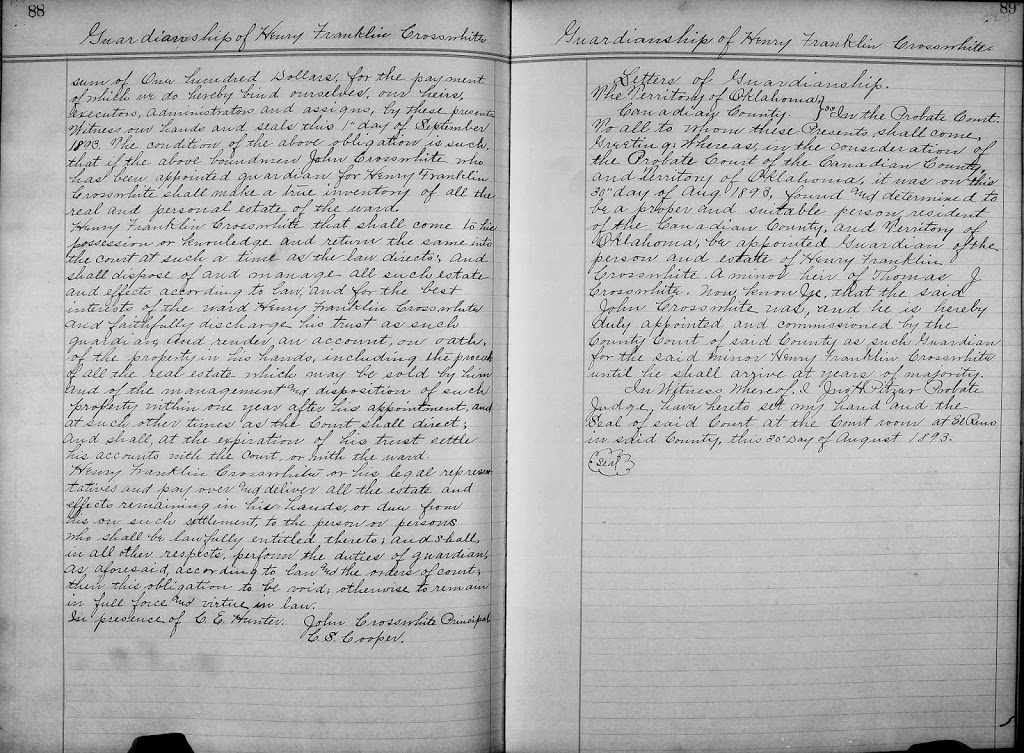 88
Guardianship of Henry Franklin Crosswhite
sum of One hundred Dollars, for the payment
of which we do hereby bind ourselves, our heirs,
Executors, Administrators and assigns, by these presents
Witness our hands and seals this 1st day of September
1893. The condition of the above obligation is such,
that if the above boundmen John Crosswhite who
has been appointed guardian for Henry Franklin
Crosswhite shall make a true inventory of all the
real and personal estate of the ward.
Henry Franklin Crosswhite that shall come to his
possession or knowledge and return the same into
the court at such a time as the law directs; and
shall dispose of and manage all such estate
and effects according to law, and for the best
interests of the ward Henry Franklin Crosswhite
and faithfully discharge his trust as such
guardian, and render, an account, on oath,
of the property in his hands, including the proceeds
of all the real estate which may be sold by him
and of the management and disposition of such
property within one year after his appointment, and
at such other times as the Court shall direct;
and shall, at the expiration of his trust settle
his accounts with the Court, or with the ward.
Henry Franklin Crosswhite or his legal represen
tatives and pay over and deliver all the estate and
effects remaining in his hands, or due from
his on such settlement, to the person or persons
who shall be lawfully entitled thereto; and shall,
in all other respects, perform the duties of guardian,
as aforesaid, according to law and the orders of court;
then this obligation to be void; otherwise to remain
in full force and virtue in law.
In presence of C. E. Hunter. John Crosswhite Principal
C. S. Cooper.
89
Guardianship of Henry Franklin Crosswhite
Letters of Guardianship.
The Territory of Oklahoma }
Canadian County. } ss In the Probate Court.
To all to whom these Presents shall come,
Greeting; Whereas, in the consideration of
the Probate Court of the Canadian County,
and Territory of Oklahoma, it was on this
30" day of Aug 1893, found and determined to
be a proper and suitable person resident
of the Canadian County, and Territory of
Oklahoma, be appointed Guardian of the
person and estate of Henry Franklin
Crosswhite. A minor heir of Thomas J
Crosswhite. Now, know Ye, that the said
John Crosswhite was, and he is hereby
duly appointed and commissioned by the
County Court of said County as such Guardian
for the said minor Henry Franklin Crosswhite
until he shall arrive at years of majority.
In Witness Whereof. I Jno H Pitzer Probate
Judge, have hereto set my hand and the
Seal of said Court at the Court room at El Reno
in said County, this 30" Day of August 1893.
(Seal)